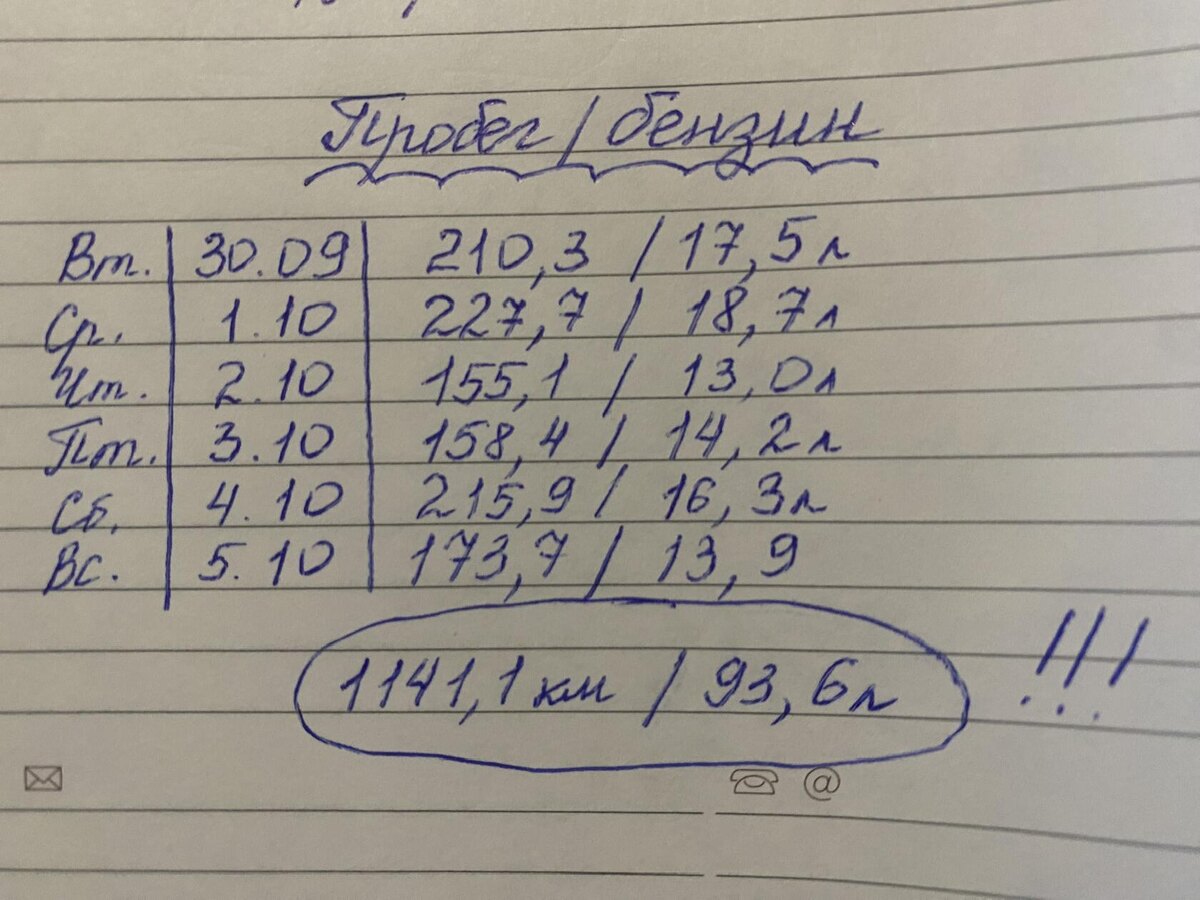 Пробег / бензин
Вт. 30.09 210,3 / 17,5л
Ср. 1.10 227,7 / 18,7л
Чт. 2.10 155,1 / 13,0л
Пт. 3.10 158,4 / 14,2л
Сб. 4.10 215,9 / 16,3л
Вс. 5.10 173,7 / 13,9
1141,1 км / 93,6л !!!
@